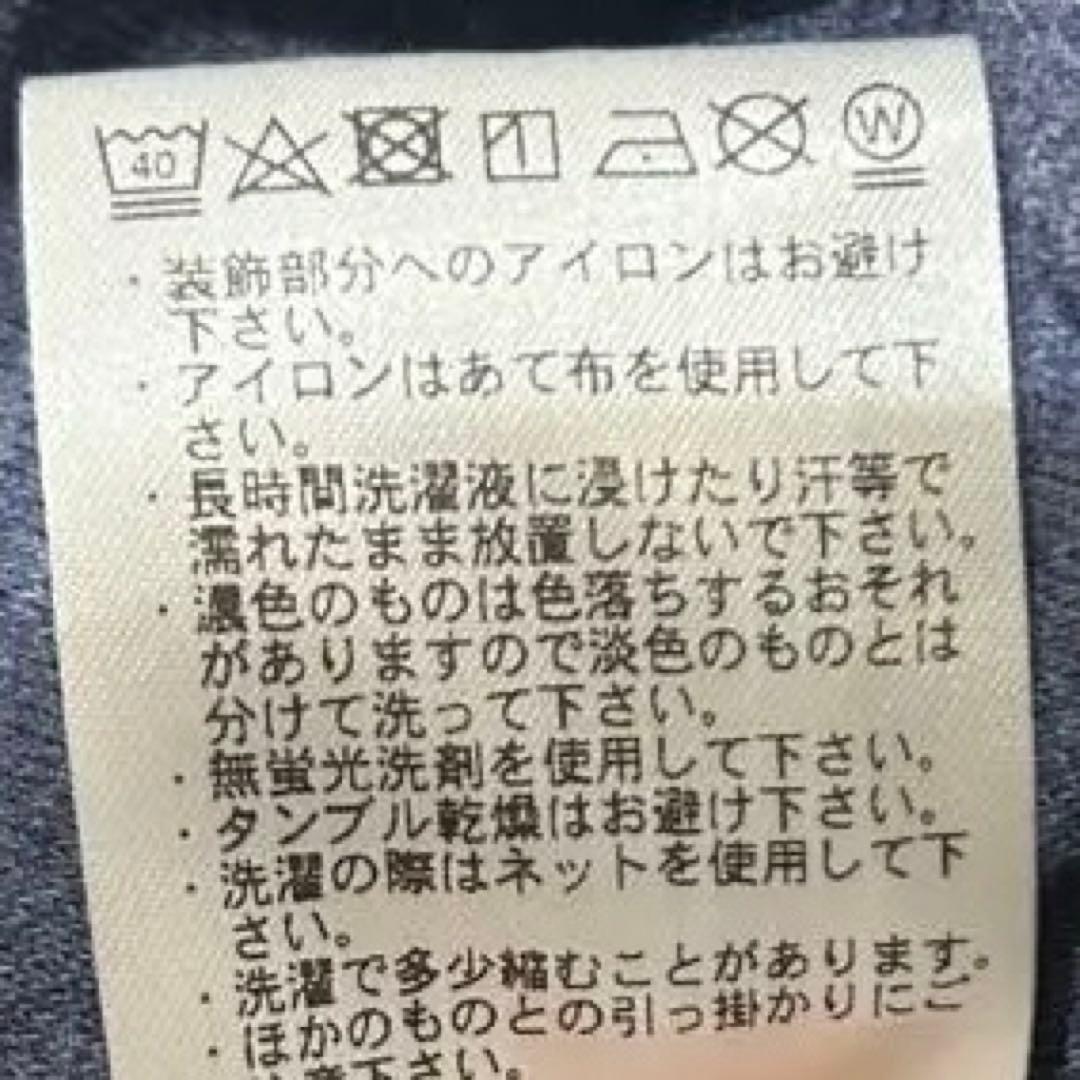 40 W
・装飾部分へのアイロンはお避け
下さい。
・アイロンはあて布を使用して下
さい。
・長時間洗濯液に浸けたり汗等で
濡れたまま放置しないで下さい。
・濃色のものは色落ちするおそれ
がありますので淡色のものとは
分けて洗って下さい。
・無蛍光洗剤を使用して下さい。
・タンブル乾燥はお避け下さい。
・洗濯の際はネットを使用して下
さい。
・洗濯で多少縮むことがあります。
・ほかのものとの引っ掛かりにご
注意下さい。